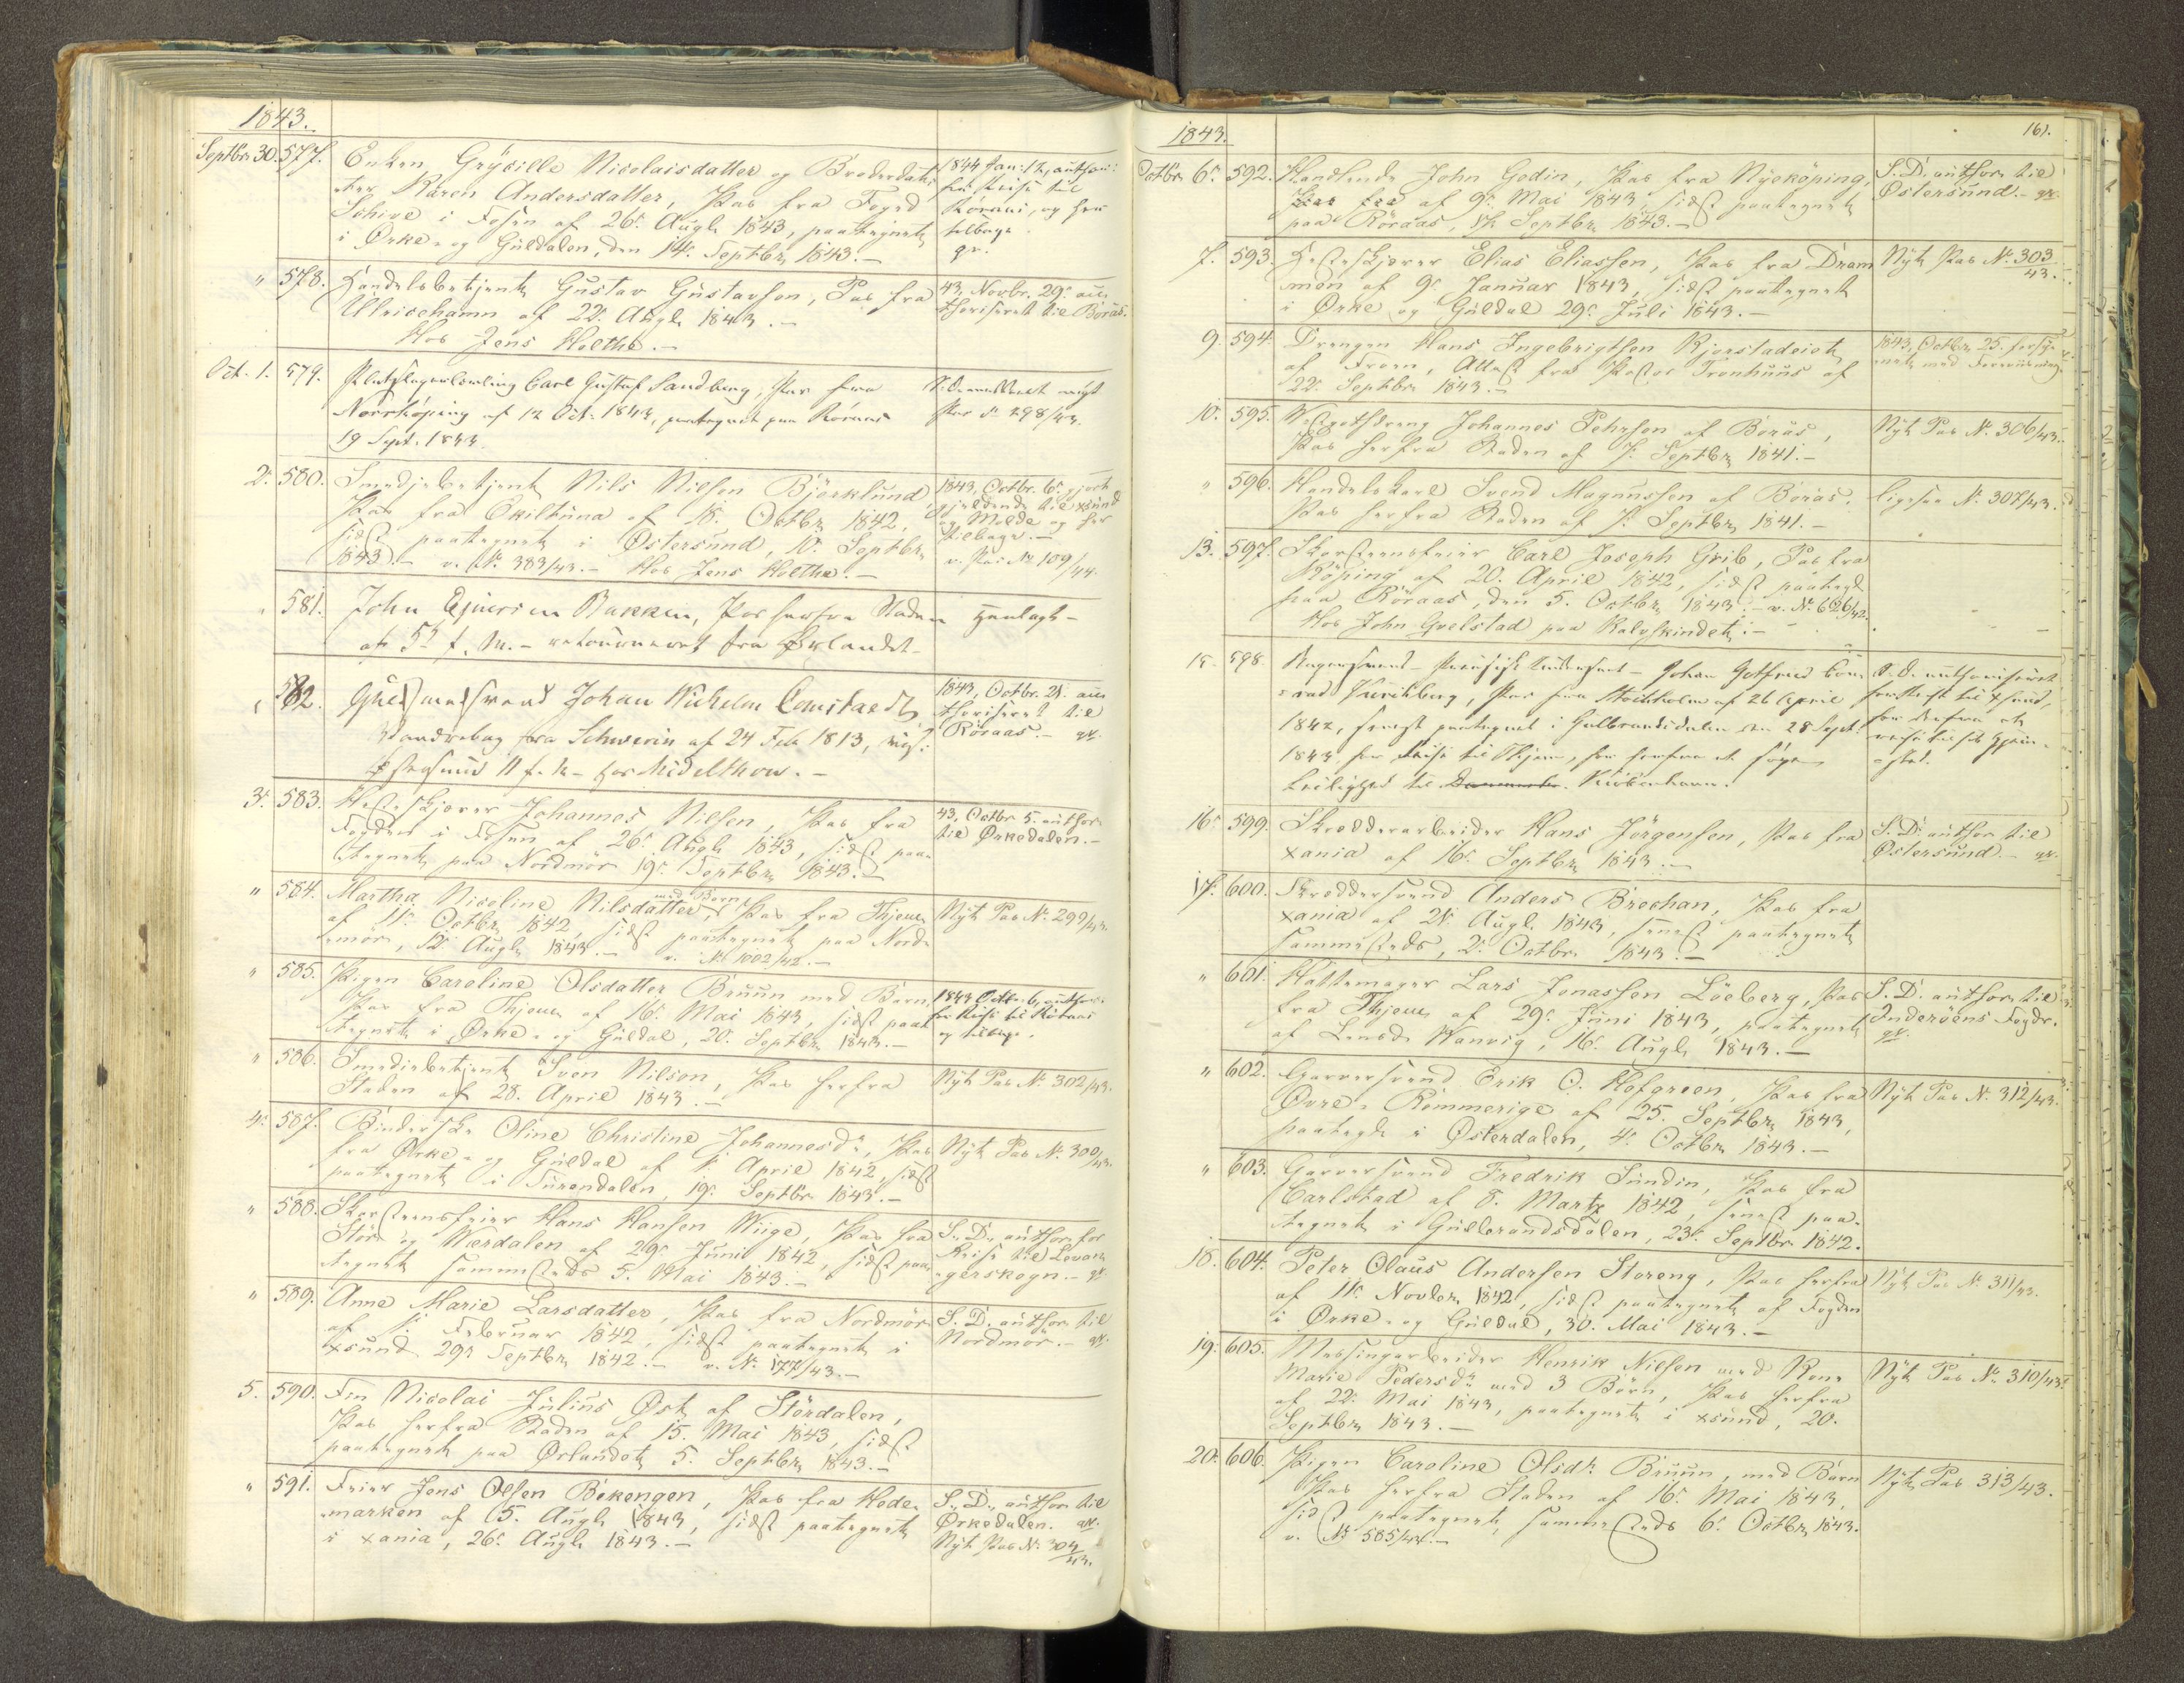 1843.
Septbr 30. 577. Enken Grÿcille Nicolaisdatter og Broderdat-
ter Karen Andersdatter, Pas fra Foged
Schive i Fosen af 26. Augt. 1843, paategnet
i Ørke- og Guldalen, den 14. Septbr. 1843.-
1844 Jan: 12, author:
for Reise til
Röraas, og her
tilbage.
" 578. Handelsbetjent Gustav Gustavson, Pas fra
Ulricehamn af 22. Augt. 1843.-
Hos Jens Holthe.-
43, Novbr. 29. au-
thoriseret til Borås.
Oct. 1. 579. Carl Gustaf Sandberg, Pas fra
Norrköping af 12 Oct. 1842, paategnet paa Röraas
19 Sept. 1843.
Pas N. 298/43.
2. 580. Smedjebetjent Nils Nilsen Björklund
Pas fra Ekiltuna af 18. Octbr. 1842,
sidst paategnet i Østersund, 10. Septbr.
1843.- v. N. 383/43.- Hos Jens Holthe.-
1843, Octbr. 6. gjort
gjeldende til xsund
og Molde og her
tilbage.-
v. Pas No 109/44.
" 581. John Ejnersen Bakken, Pas herfra Staden
af 5. f. M. - retourneret fra Ørlandet.
henlagt-
" 582. Guldsmedsvend Johan Wilhelm
Vandrebog fra Schwerin af 24 Feb 1813,
11 f. M. - hos Midelthon.-
1843, Octbr. 21. au-
thoriseret til
Röraas.-
3. 583. Hesteskjærer Johannes Nilsen, Pas fra
Fogden i Fosen af 26. Augt. 1843, sidst paa-
tegnet paa Nordmör 19. Septbr. 1843.-
43, Octbr 5. author.
til Ørkedalen.-
" 584. Martha Nicoline Nilsdatter, med Børn, Pas fra Thjem
af 11. Octbr. 1842, sidst paategnet paa Nord-
mör, 12. Augt. 1843.- v. N. 1002/42.-
Nyt Pas No. 299/43.
" 585. Pigen Caroline Olsdatter Bruun med Barn,
Pas fra Thjem af 16. Mai 1843, sidst paa-
tegnet i Ørke- og Guldal, 20. Septbr. 1843.-
1843 Octbr. 6, author.
for Reise til Röraas
og tilbage.
" 586. Smediebetjent Sven Nilson, Pas herfra
Staden af 28. April 1843.-
Nyt Pas No. 302/43.
4. 587. Binderske Oline Christine Johannesdr., Pas
fra Ørke- og Guldal af 1. April 1842, sidst
paategnet i Surendalen, 19. Septbr. 1843.-
Nyt Pas No. 300/43.
" 588. Skorsteensfeier Hans Hansen Wiige, Pas fra
Stör- og Værdalen af 29. Juni 1842, sidst paa-
tegnet sammesteds 5. Mai 1843.-
S. D. author. for
Reise til Levan-
gerskogn.-
" 589. Anne Marie Larsdatter, Pas fra Nordmör
af 1. Februar 1842, sidst paategnet i
xsund 29. Septbr. 1842.- v. No. 177/43.-
S. D. author. til
Nordmör.-
5. 590. Fin Nicolai Julius Øst af Stördalen,
Pas herfra Staden af 15. Mai 1843, sidst
paategnet paa Ørlandet 5. Septbr. 1843.-
" 591. Feier Jens Olsen Bekengen, Pas fra Hede-
marken af 15. Augt. 1843, sidst paategnet
i xania, 26. Augt. 1843.-
S. D. author. til
Ørkedalen.
Nyt Pas No. 304/43.
1843. 161.
Octbr. 6. 592. Handlende John Godin, Pas fra Nyeköping,
af 9. Mai 1843, sidst paategnet
paa Röraas, Septbr. 1843.-
S. D. author. til
Østersund.-
7. 593. Hesteskjærer Elias Eliassen, Pas fra Dram-
men af 9. Januar 1843, sidst paategnet
i Ørke og Guldal 29. Juli 1843.-
Nyt Pas No. 303/43.
9. 594. Drengen Hans Ingebrigtsen Kjorstadeiet
af Froen, Attest fra Pastor Tronhuus af
22. Septbr. 1843.-
1843, Octbr. 25. forsy-
net med
10. 595. Johannes Pehrson af Borås,
Pas herfra Staden af 7. Septbr. 1841.-
Nyt Pas No. 306/43.
" 596. Handelskarl Svend Magnussen af Borås.
Pas herfra Staden af 7. Septbr. 1841.-
ligesaa No. 307/43.
13. 597. Skorsteensfeier Carl Joseph Grib, Pas fra
Köping af 20. April 1842, sidst paategt.
paa Röraas, den 5. Octbr. 1843.- v. No. 626/42.
Hos John Gvelstad paa Kalvskindet.-
15. 598. Johan Gotfried Con-
rad Kirchberg, Pas fra Stockholm af 26 April
1842, senest paategnet i Gulbrandsdalen den 28 Sept.
1843 for Reise til Thjem, for herfra at søge
Leilighed til Kiöbenhavn.
S. D. authoriseret
til Xsund,
for derfra at
reise til sit Hjem-
sted.
16. 599. Skrædderarbeider Hans Jörgensen, Pas fra
xania af 16. Septbr. 1843.-
S. D. author. til
Østersund.-
17. 600. Skræddersvend Anders Brechan, Pas fra
xania af 21. Augt. 1843, senest paategnet
sammesteds, 2. Octbr. 1843.-
" 601. Hattemager Lars Jonassen Löeberg, Pas
fra Thjem af 29. Juni 1843, paategnet
af Lensd. Wanvig, 16. Augt. 1843.-
S. D. author. til
Inderöens Fogdr.
" 602. Garversvend Erik O. Hofgreen, Pas fra
Øvre- Rommerige af 25. Septbr. 1843,
paategt. i Østerdalen, 4. Octbr. 1843.-
Nyt Pas No. 312/43.
" 603. Garversvend Fredrik Sundin, Pas fra
Carlstad af 8. Martz 1842, senest paa-
tegnet i Gulbrandsdalen, 23. Septbr. 1842.
18. 604. Peter Olaus Andersen Storeng, Pas herfra
af 11. Novbr. 1842, sidst paategnet af Fogden
i Ørke- og Guldal, 30. Mai 1843.-
Nyt Pas No. 311/43.
19. 605. Messingarbeider Henrik Nielsen med Kone
Marie Pedersdr. med 3 Börn, Pas herfra
af 22. Mai 1843, paategnet i xsund, 20.
Septbr. 1843.-
Nyt Pas No. 310/43.
20. 606. Pigen Caroline Olsdr. Bruun, med Barn
Pas herfra Staden af 16. Mai 1843,
sidst paategnet, sammesteds 6. Octbr. 1843.
v. No 585/43.-
Nyt Pas 313/43.